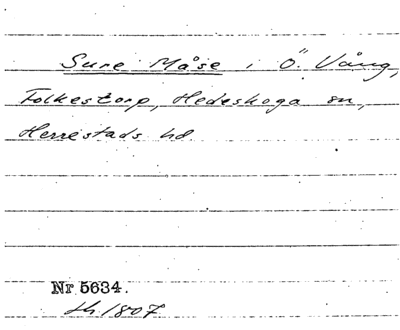 Sure Måse i Ö. Vång,
Folkestorp, Hedeskoga sn,
Herrestads hd
Nr 5634.
Lh 1807